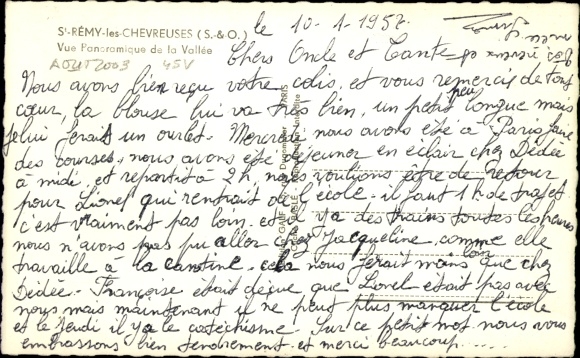 St-RÉMY-les-CHEVREUSES (S.-&-O.)
Vue Panoramique de la Vallée
AOUT 2003 45V
le 10-1-1957.
Chers Oncle et Tante
Nous avons bien reçu votre colis, et vous remercie de tout
cœur, la blouse lui va très bien, un petit peu longue mais
je lui ferait un ourlet. Mercredi nous avons été à Paris faire
des courses, nous avons été déjeuner en éclair chez Dédée
à midi, et repartit à 2h, nous voulions être de retour
pour Lionel qui rentrait de l'école - il faut 1h de trajet
c'est vraiment pas loin, et il y a des trains toutes les heures
nous n'avons pas pu aller chez Jacqueline, comme elle
travaille à la cantine, cela nous ferait moins loin que chez
Dédée - Françoise était déçue que Lionel était pas avec
nous mais maintenant il ne peut plus manquer l'école
et le Jeudi il y a le catéchisme. Sur ce petit mot nous vous
embrassons bien tendrement et merci beaucoup.....